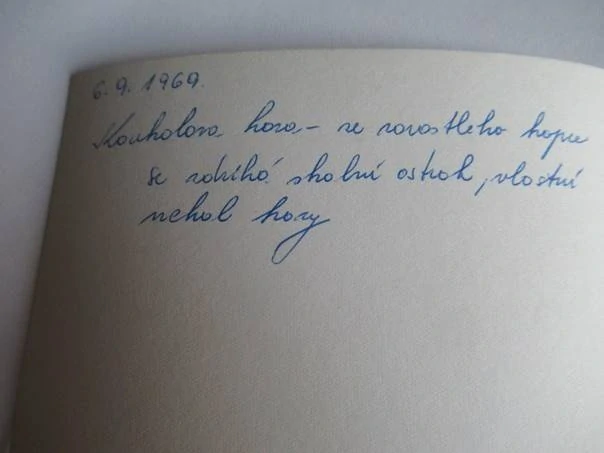 6.9.1969.
Koukolova hora – ze zarostlého kopce
se zdvíhá skalní ostroh, vlastní
vrchol hory